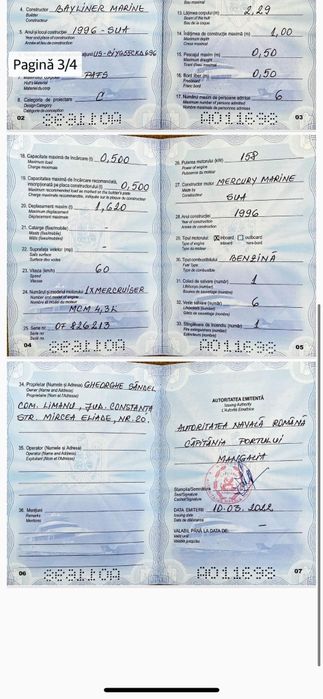 4. Constructor BAYLINER MARINE
Builder
Constructeur
5. Anul și locul construcției 1996 - SUA
Year and place of construction
Année et lieu de construction
Pagină 3/4
PAFS
Hull's Material
8. Categoria de proiectare C
Design Category
Catégorie de conception
02
Beau maximal
13. Lățimea corpului (m) 2,29
Beam of the hull
Bau de la coque
14. Înălțimea de construcție maximă (m) 1,00
Maximum depth
Creux maximal
15. Pescajul maxim (m) 0,50
Maximum draught
Tirant d'eau maximal
16. Bord liber (m) 0,50
Freeboard
Franc bord
17. Numărul maxim de persoane admise 6
Maximum number of persons admitted
Nombre maximale de personnes admises
A011698 03
18. Capacitatea maximă de încărcare (t) 0,500
Maximum load
Charge maximale
19. Capacitatea maximă de încărcare recomandată,
inscripționată pe placa constructorului (t) 0,500
Maximum recommended load as marked on the builder's plate
Charge maximale recommandée, indiquée sur la plaque du constructeur
20. Deplasament maxim (t) 1,620
Maximum displacement
Déplacement maximum
21. Catarge (fixe/mobile) —
Masts (fixed/mobile)
Mâts (fixes/mobiles)
22. Suprafața velelor (mp) —
Sails surface
Surface des voiles
23. Viteza (km/h) 60
Speed
Vitesse
24. Numărul și modelul motorului 1XMERCRUISER
Number and model of engine
Nombre et modèle du moteur
MCM 4,3L
25. Serie nr. OF 826213
04
26. Puterea motorului (kW) 158
Power of engine
Puissance du moteur
27. Constructor motor MERCURY MARINE
Made by
Constructeur
SUA
28. Anul construcției 1996
Year of construction
Année de construction
29. Tipul motorului: inboard outboard
Type of engine in-board
Type du moteur hors-bord
30. Tipul combustibilului BENZINA
Fuel Type
Type du combustible
31. Colaci de salvare (număr) 1
Lifebuoys (number)
Bouées de sauvetage (nombre)
32. Veste salvare (număr) 6
Lifejackets (number)
Gilets de sauvetage (nombre)
33. Stingătoare de incendiu (număr) 1
Fire extinguishers (number)
Extincteurs (nombre)
A011698 05
34. Proprietar (Numele și Adresa) GHEORGHE SANDEL
Owner (Name and Address)
Propriétaire (Nom et l'Adresse)
COM. LIMANU, JUD. CONSTANȚA
STR. MIRCEA ELIADE, NR. 20.
35. Operator (Numele și Adresa)
Operator (Name and Address)
Exploitant (Nom et l'Adresse)
36. Mențiuni
Remarks
Mentions
06
AUTORITATEA EMITENTĂ
Issuing Authority
L'Autorité Émettrice
AUTORITATEA NAVALĂ ROMÂNĂ
CĂPITĂNIA PORTULUI
MANGALIA
Ștampila/Semnătura
Seal/Signature
Cachet/Signature
DATA EMITERII 10.03.2022
Issuing date
Date de délivrance
VALABIL PÂNĂ LA DATA DE: —
Valid until
Valable jusqu'au
A011698 07